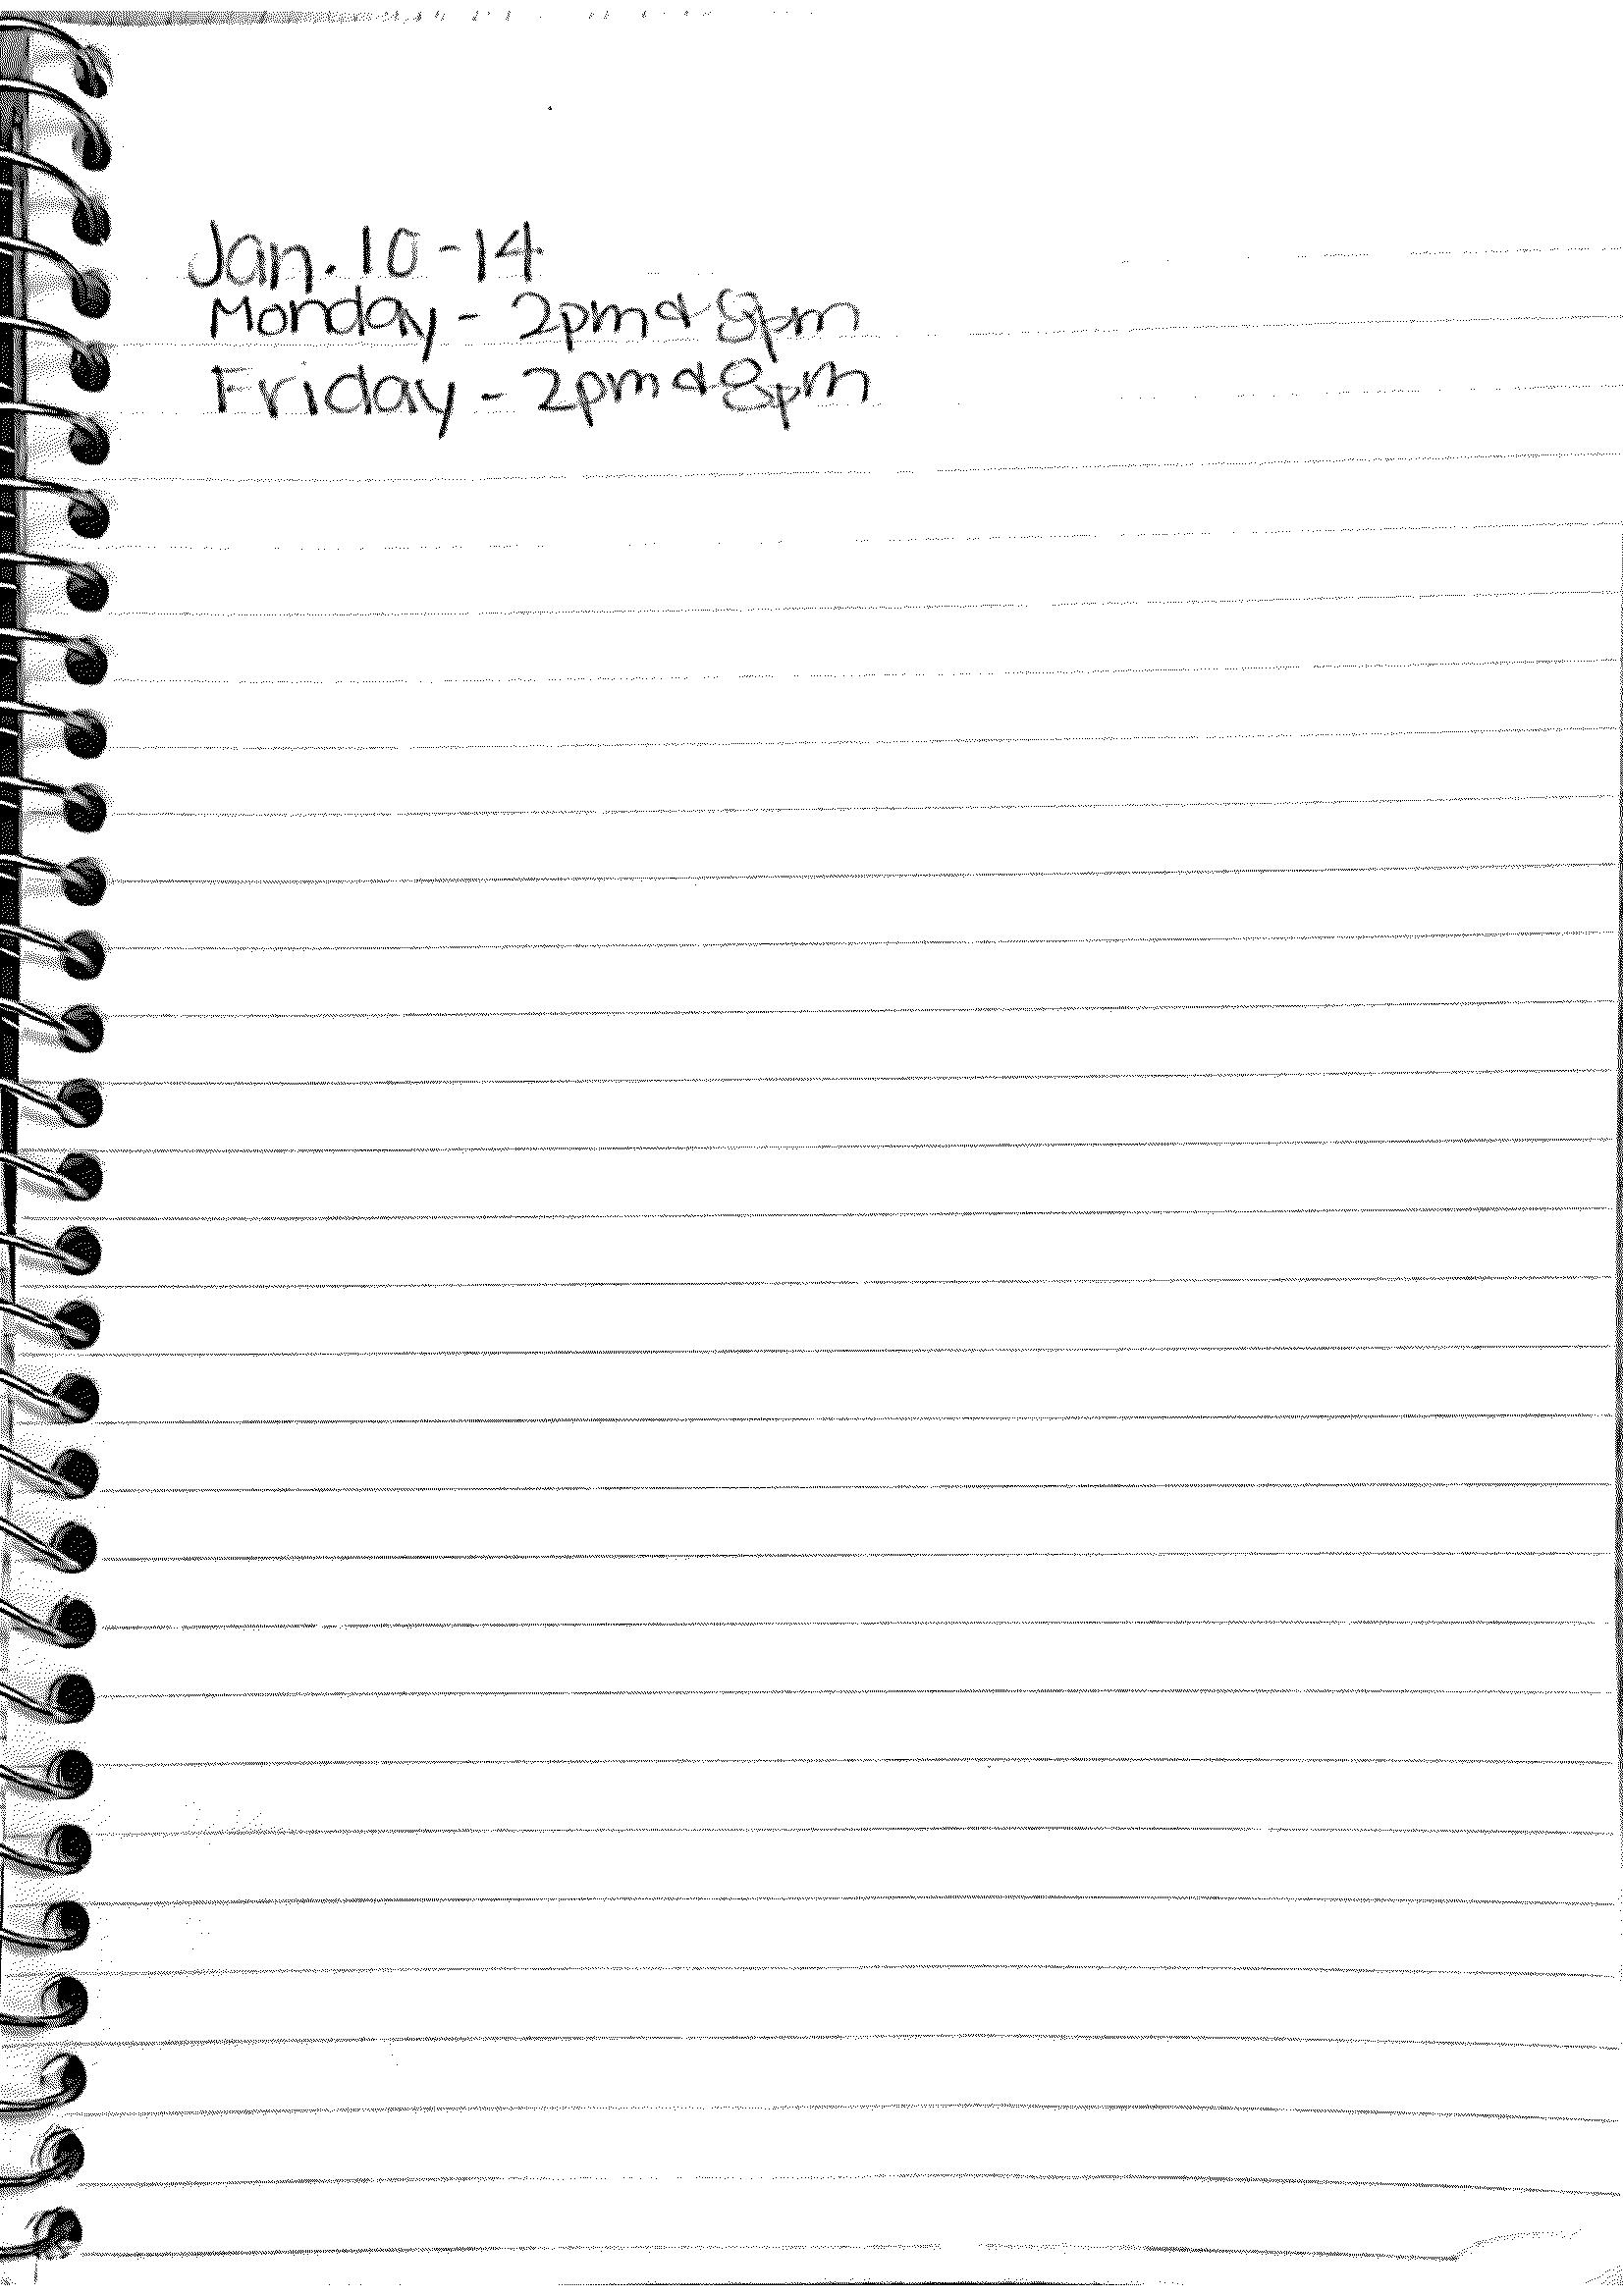 Jan. 10-14
Monday - 2pm & 8pm
Friday - 2pm & 8pm